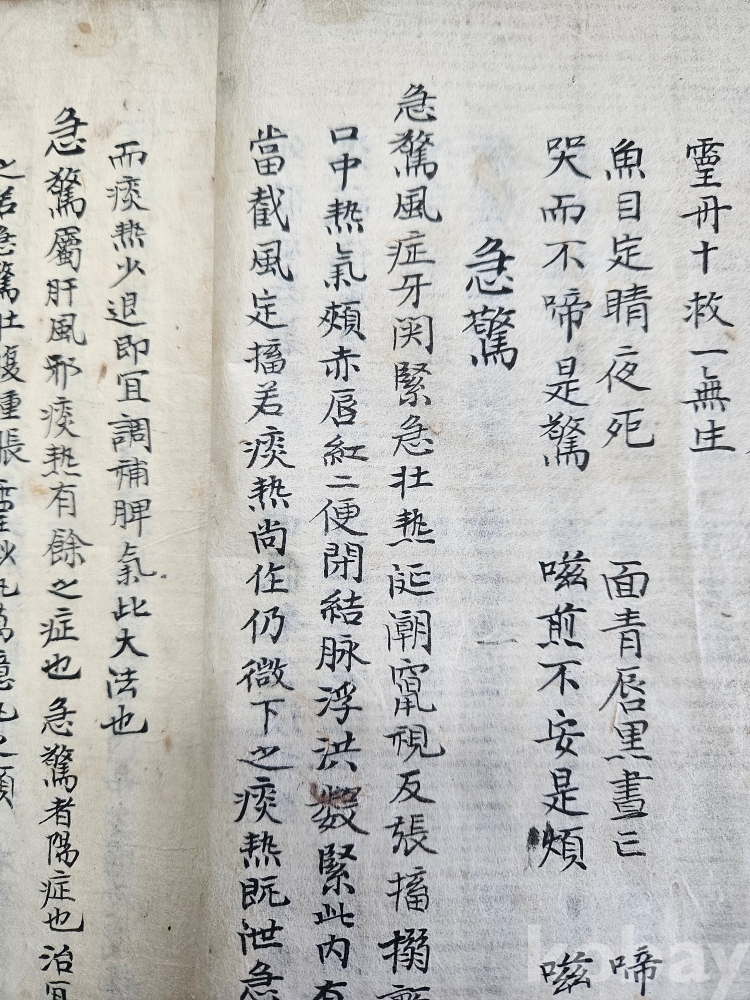 靈丹十救一無生
魚目定睛夜死 面青唇黑晝亡 啼
哭而不啼是驚 嗞煎不安是煩 嗞
急驚
急驚風症牙関緊急壮热涎潮竄視反張搐搦
口中热氣頰赤唇紅二便閉結脉浮洪數緊此内有
當截風定搐若痰热尚住仍微下之痰热既泄急
而痰热少退即宜調補脾氣此大法也
急驚屬肝風邪痰热有餘之症也急驚者陽症也治宜
之若急驚壮
kobay